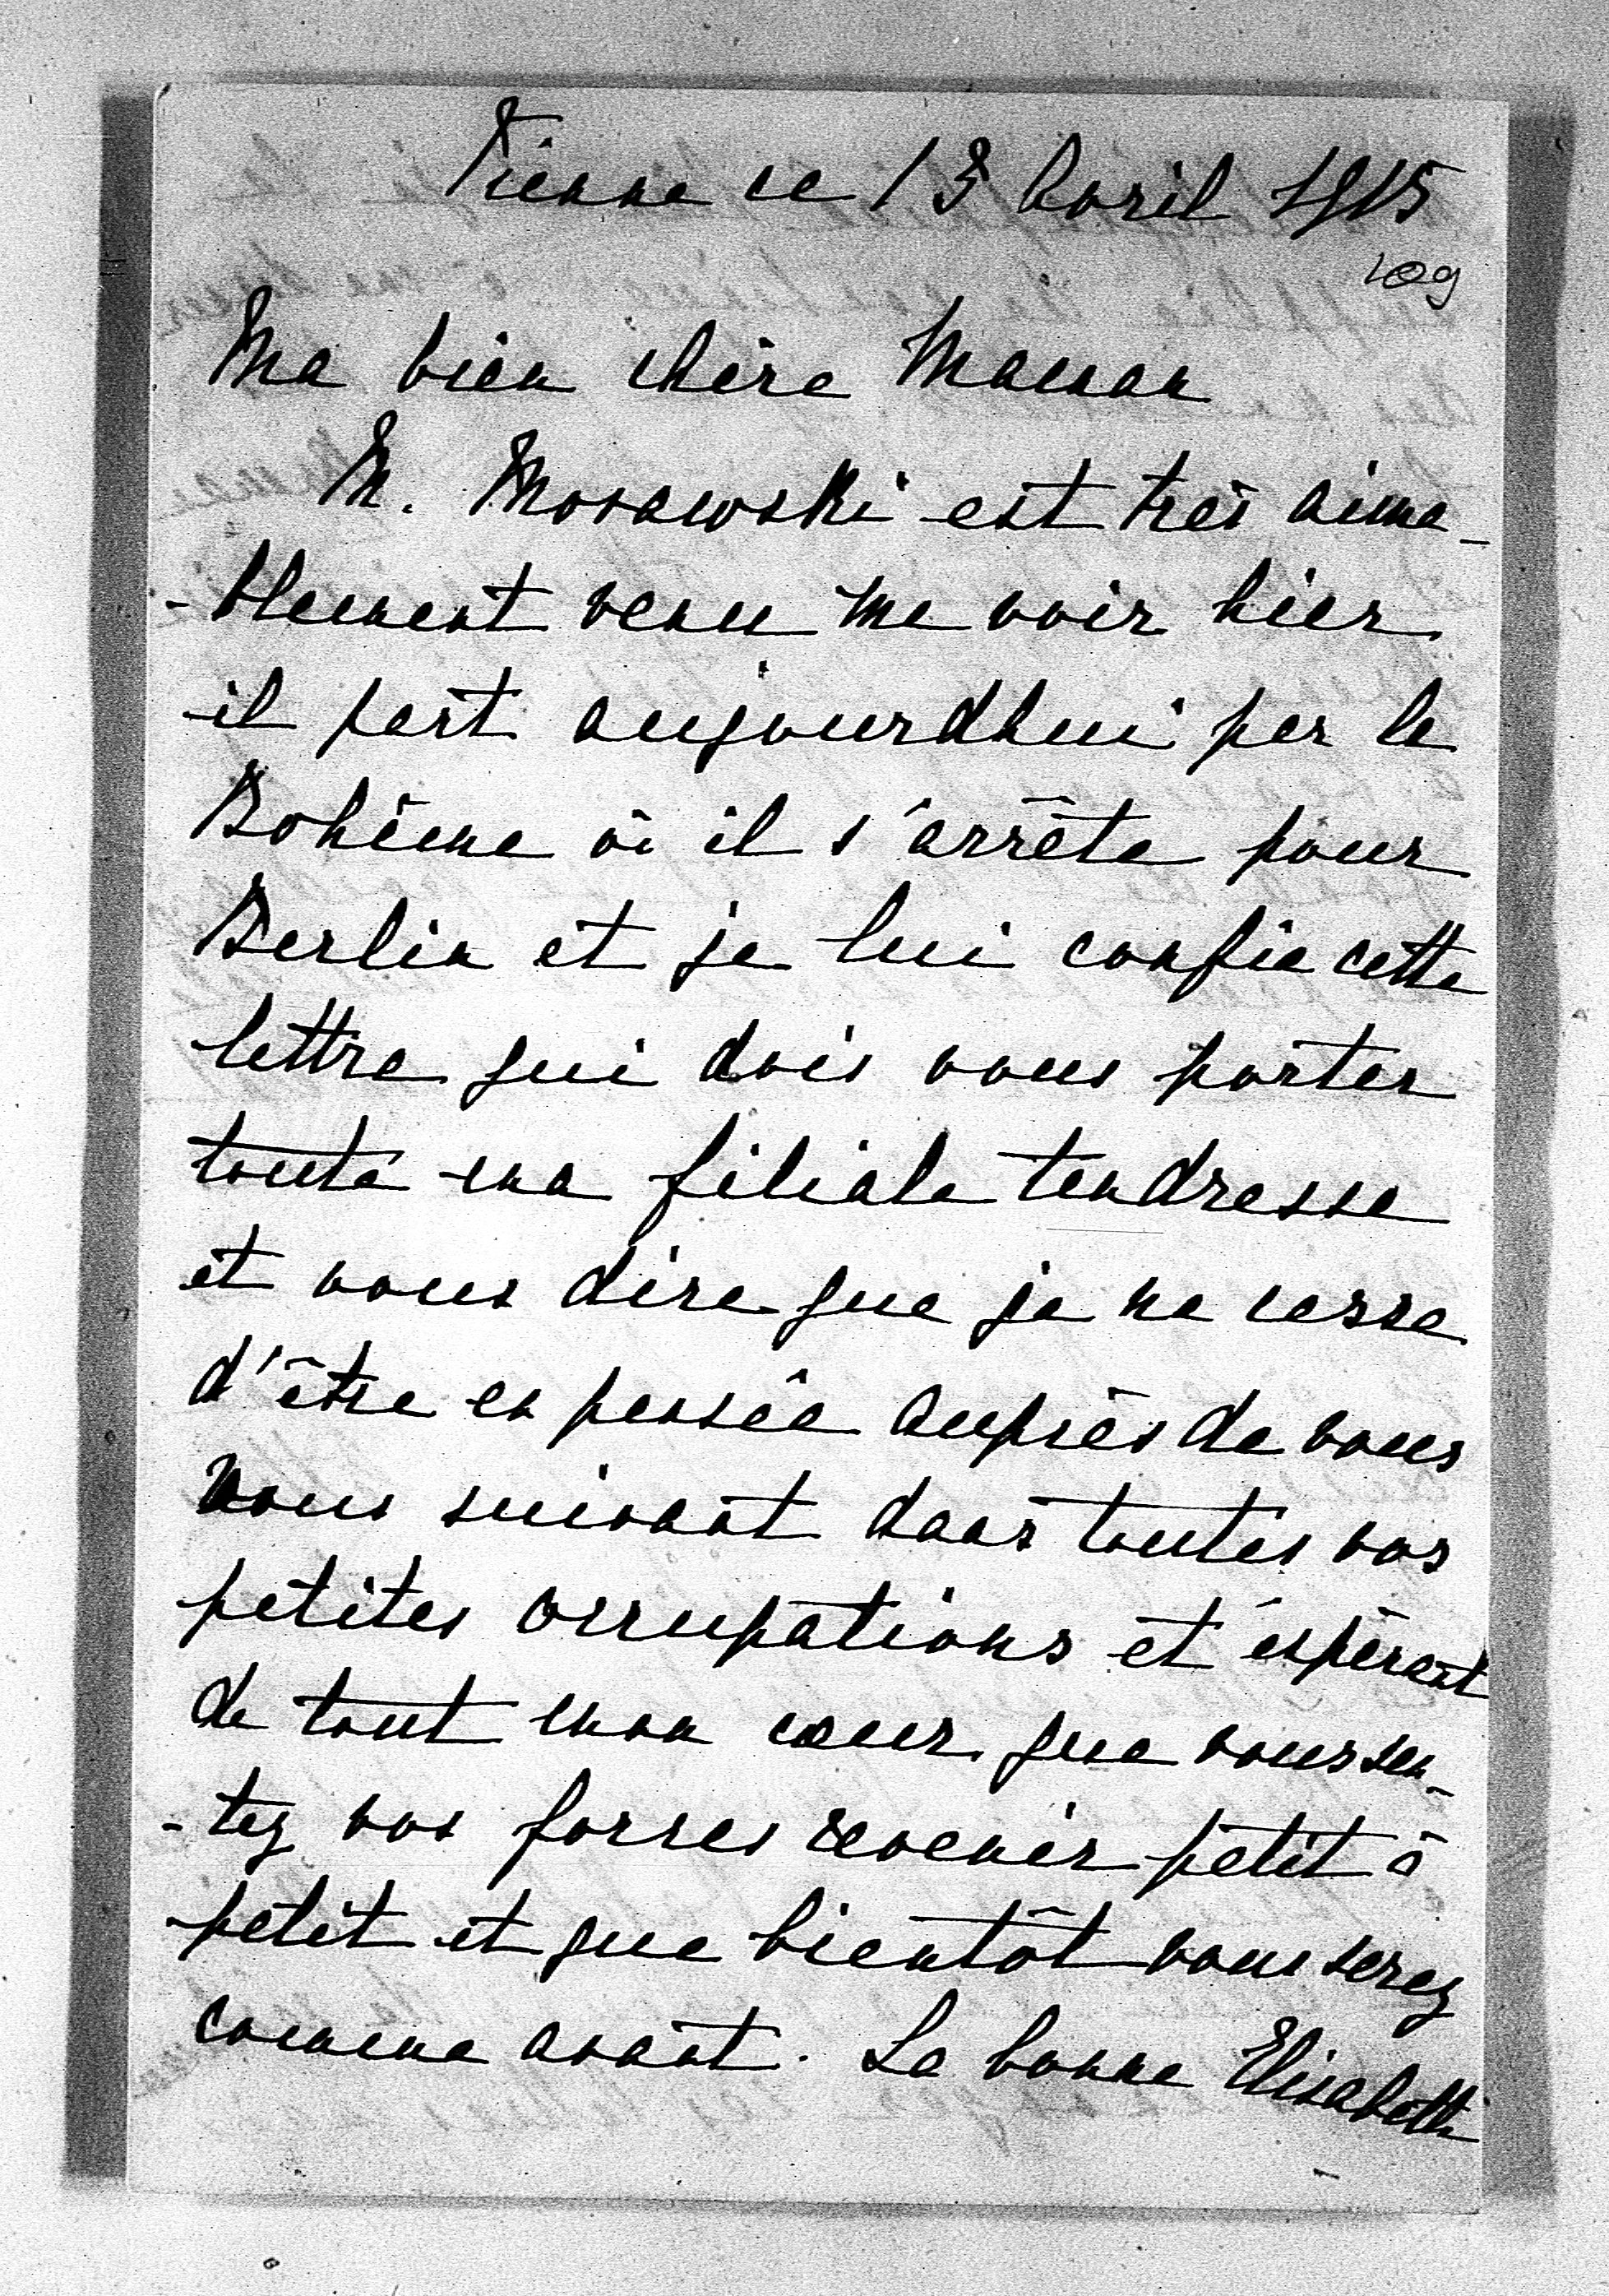 Vienne ce 13 Avril 1915
109
Ma bien chère Maman
M. Morawski est très aima-
-blement venu me voir hier
il part aujourdhui par la
Bohême où il s'arrête pour
Berlin et je lui confie cette
lettre qui dois vous porter
toute ma filiale tendresse
et vous dire que je ne cesse
d'être en pensée auprès de vous
vous suivant dans toutes vos
petites occupations et éspérant
de tout mon coeur que vous sen-
-tez vos forces revenir petit à
petit et que bientôt vous serez
comme avant. La bonne Elisabeth